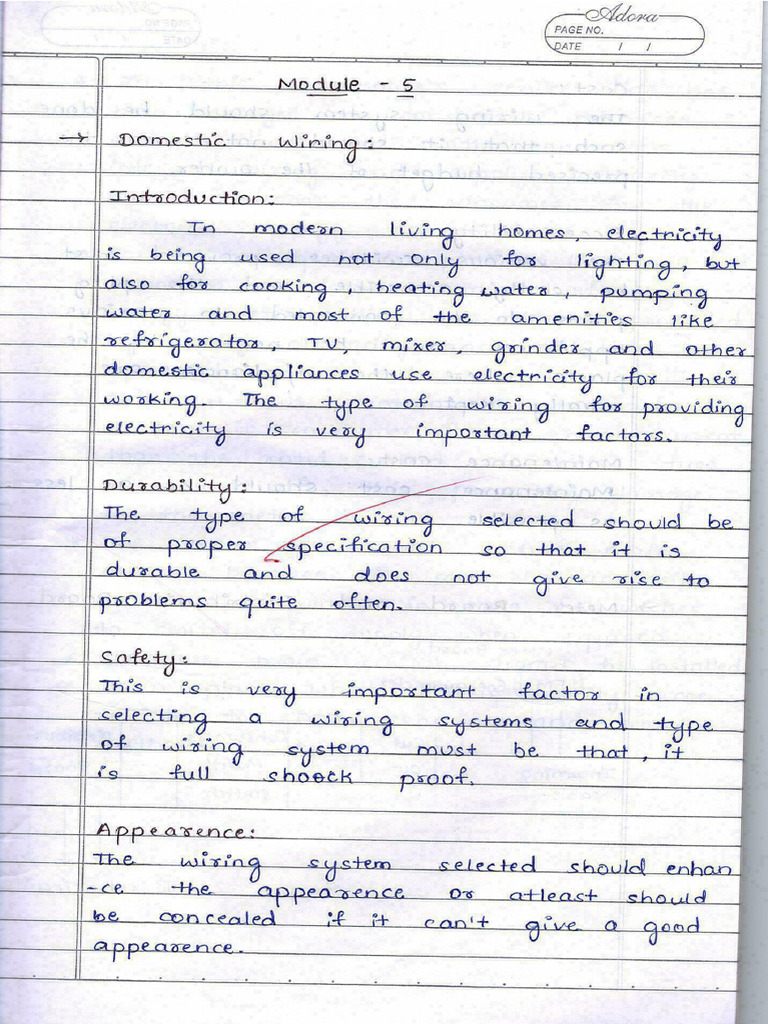 Adora
PAGE NO.
DATE / /
Module - 5
→ Domestic Wiring:
Introduction:
In modern living homes, electricity
is being used not only for lighting, but
also for cooking, heating water, pumping
water and most of the amenities like
refrigerator, TV, mixer, grinder and other
domestic appliances use electricity for their
working. The type of wiring for providing
electricity is very important factors.
Durability:
The type of wiring selected should be
of proper specification so that it is
durable and does not give rise to
problems quite often.
Safety:
This is very important factor in
selecting a wiring systems and type
of wiring system must be that, it
is full shock proof.
Appearence:
The wiring system selected should enhan
-ce the appearence or atleast should
be concealed if it can't give a good
appearence.